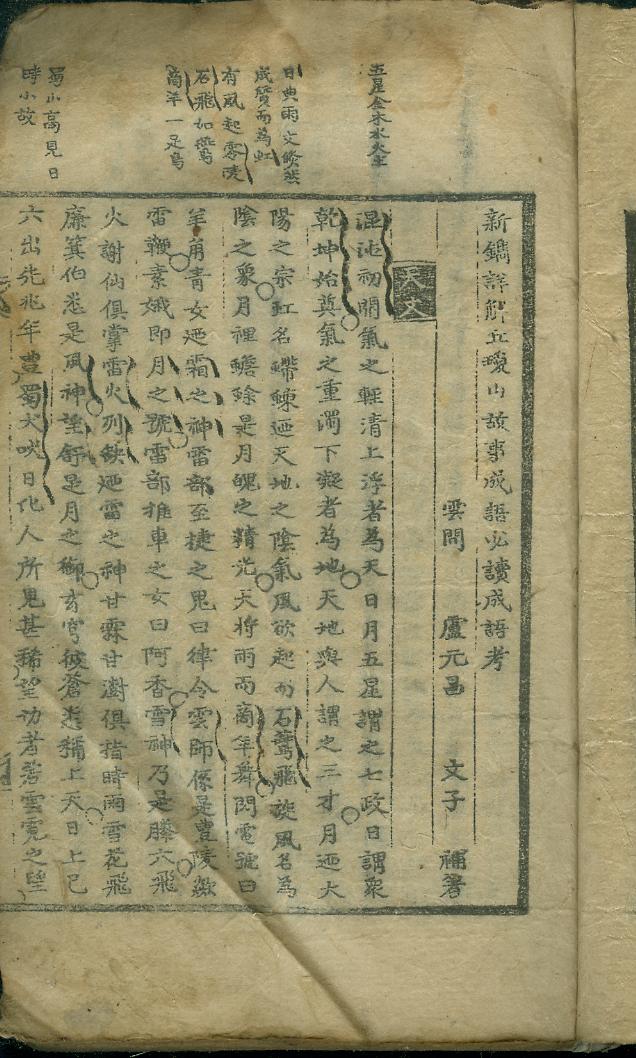 五星金木水火土
日與雨交倐然
成質而為虹
有風起零陵
石飛如鷰
商羊一足鳥
蜀山高見日
時小故
新鐫詳解丘瓊山故事成語必讀成語考
雲間 盧元昌 文子 補著
天文
混沌初開氣之輕清上浮者為天日月五星謂之七政日謂衆
乾坤始奠氣之重濁下凝者為地天地與人謂之三才月迺大
陽之宗虹名螮蝀迺天地之陰氣風欲起而石鷰飛旋風名為
陰之象月裡蟾蜍是月魄之精光天將雨而商羊舞閃電號曰
羊角青女迺霜之神雷部至捷之鬼曰律令雲師係是豊隆欻
雷鞭素娥即月之號雷部推車之女曰阿香雪神乃是滕六飛
火謝仙俱掌雷火列缺迺雷之神甘霖甘澍俱指時雨雪花飛
廉箕伯悉是風神望舒是月之御玄穹彼蒼悉稱上天日上已
六出先兆年豊蜀犬吠日比人所見甚稀望切者若雲霓之望